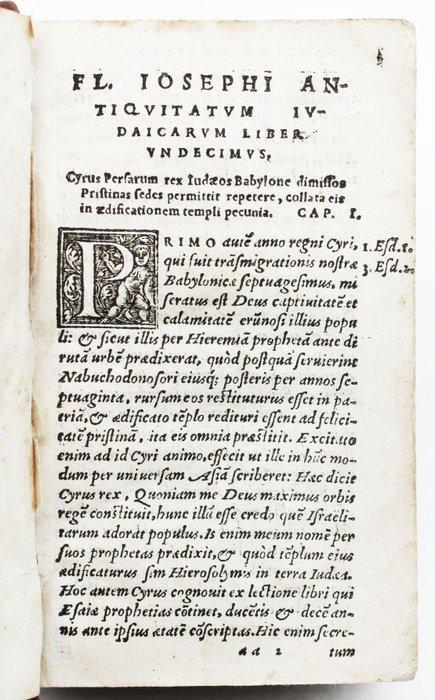 FL. IOSEPHI AN-
TIQVITATVM IV-
DAICARVM LIBER
VNDECIMVS,
Cyrus Persarum rex Iudæos Babylone dimissos
Pristinas sedes permittit repetere, collata eis
in ædificationem templi pecunia. CAP. I.
PRIMO autē anno regni Cyri, 1. Esd. 1.
qui fuit trāsmigrationis nostræ 3. Esd. 2.
Babylonicæ septuagesimus, mi
seratus est Deus captiuitatē et
calamitatē erūnosi illius popu
li: & sicut illis per Hieremiā prophetā ante di
rutā urbē prædixerat, quòd postquā seruierint
Nabuchodonosori eiusq; posteris per annos se-
ptuaginta, rursum eos restituturus esset in pa-
triā, & ædificato tēplo redituri essent ad felici-
tatē pristinā, ita eis omnia præstitit. Excitato
enim ad id Cyri animo, effecit ut ille in hūc mo-
dum per uniuersam Asiā scriberet: Hæc dicit
Cyrus rex, Quoniam me Deus maximus orbis
regē constituit, hunc illū esse credo quē Israeli-
tarum adorat populus. Is enim meum nomē per
suos prophetas prædixit, & quòd tēplum eius
ædificaturus sim Hierosolymis in terra Iudæa.
Hoc autem Cyrus cognouit ex lectione libri qui
Esaiæ prophetias cōtinet, ducētis & decē an-
nis ante ipsius ætatē cōscriptas. Hic enim secre-
aa 2 tum